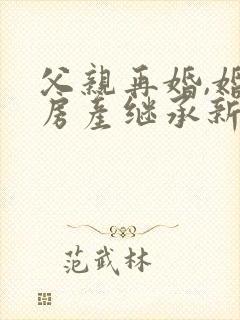 父亲再婚,婚
房产继承新
范武林